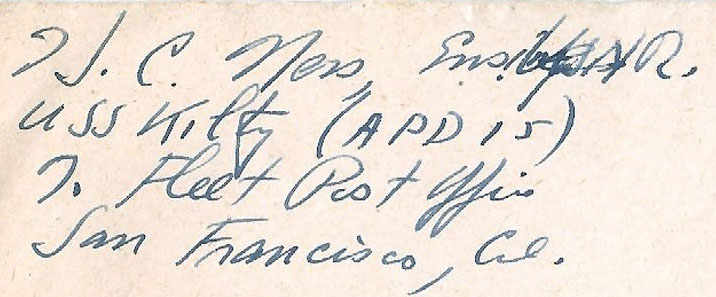 J. C. Ness, Ens. USNR.
USS Kilty (APD 15)
Fleet Post Office
San Francisco, Cal.